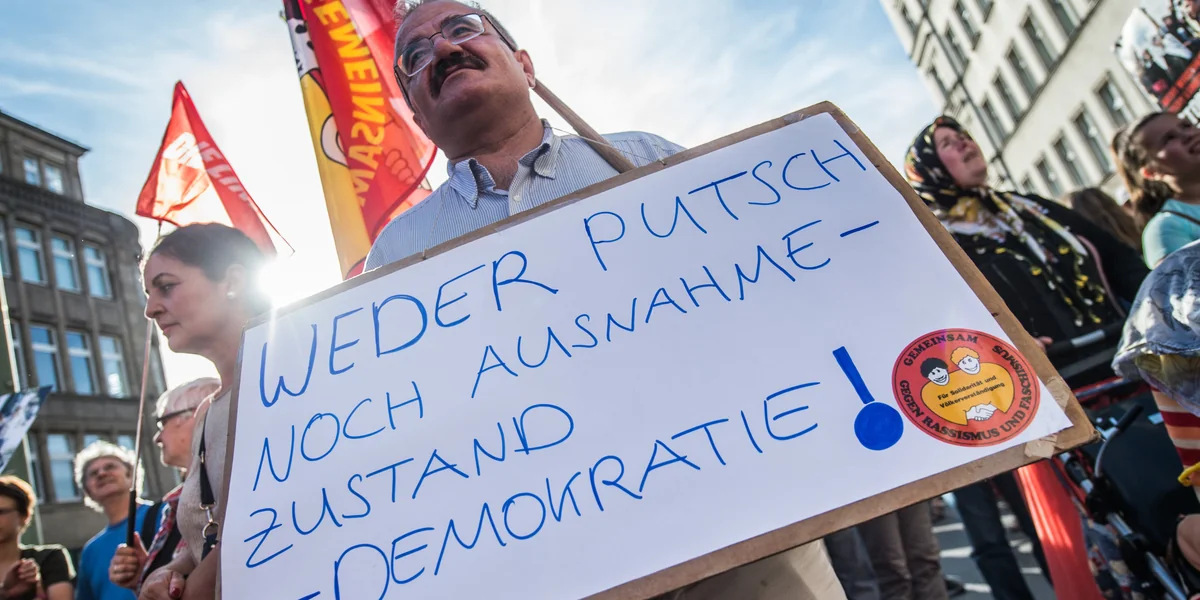 WEDER PUTSCH
NOCH AUSNAHME-
ZUSTAND
-DEMOKRATIE!
GEMEINSAM
GEGEN RASSISMUS UND FASCHISMUS
Für Solidarität und
Völkerverständigung
GEMEINSAM